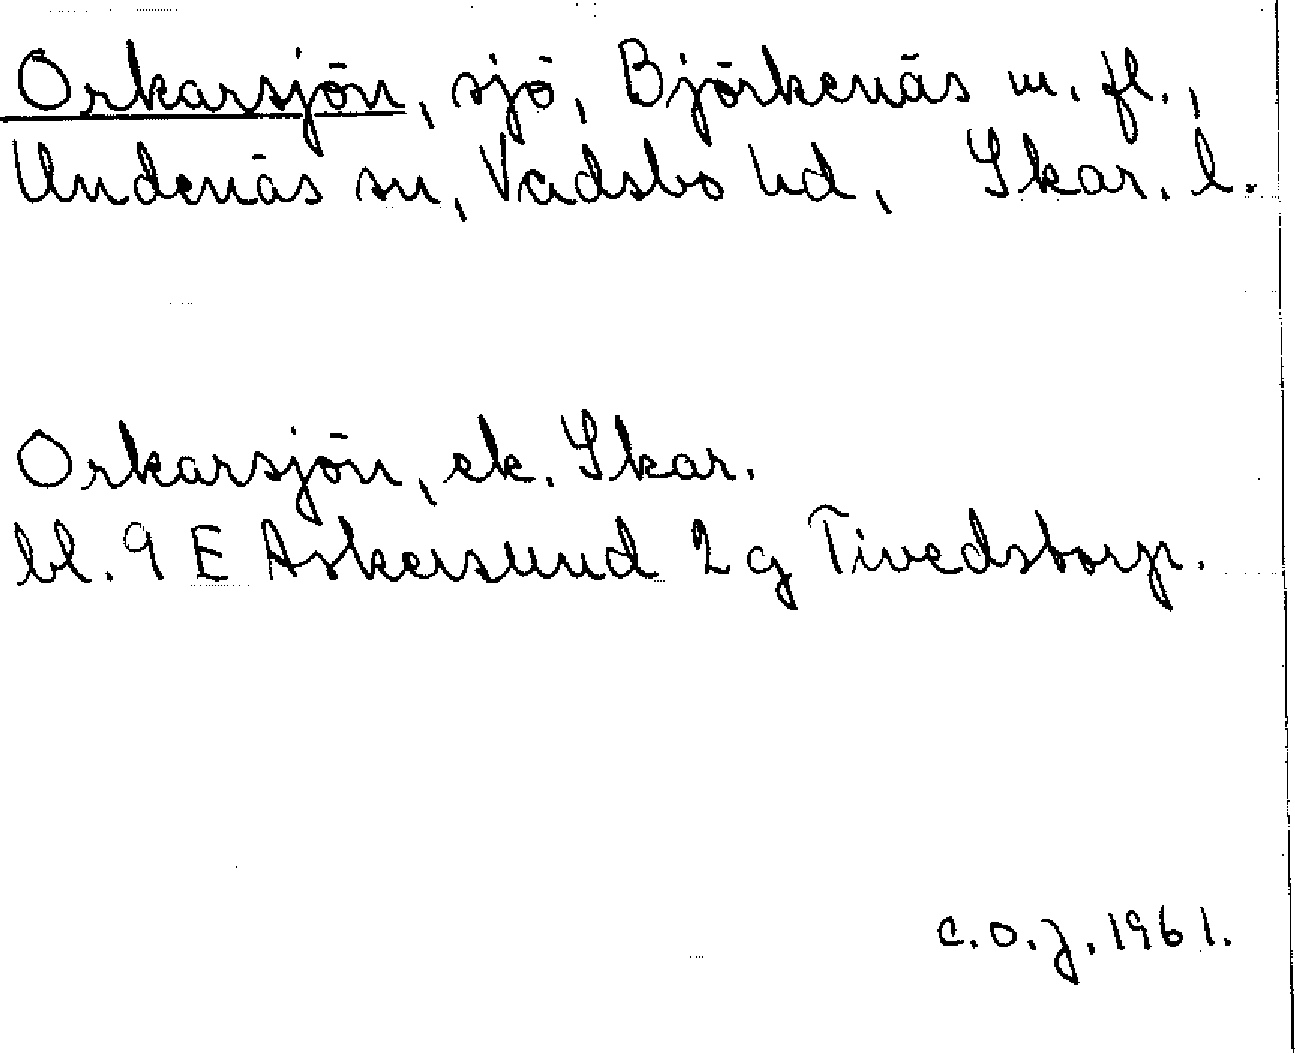 Orkarsjön, sjö, Björkenäs m. fl.,
Undenäs sn, Vadsbo hd, Skar. l.
Orkarsjön, ek. Skar.
bl. 9 E Askersund 2 g Tivedstorp.
C.O.J. 1961.